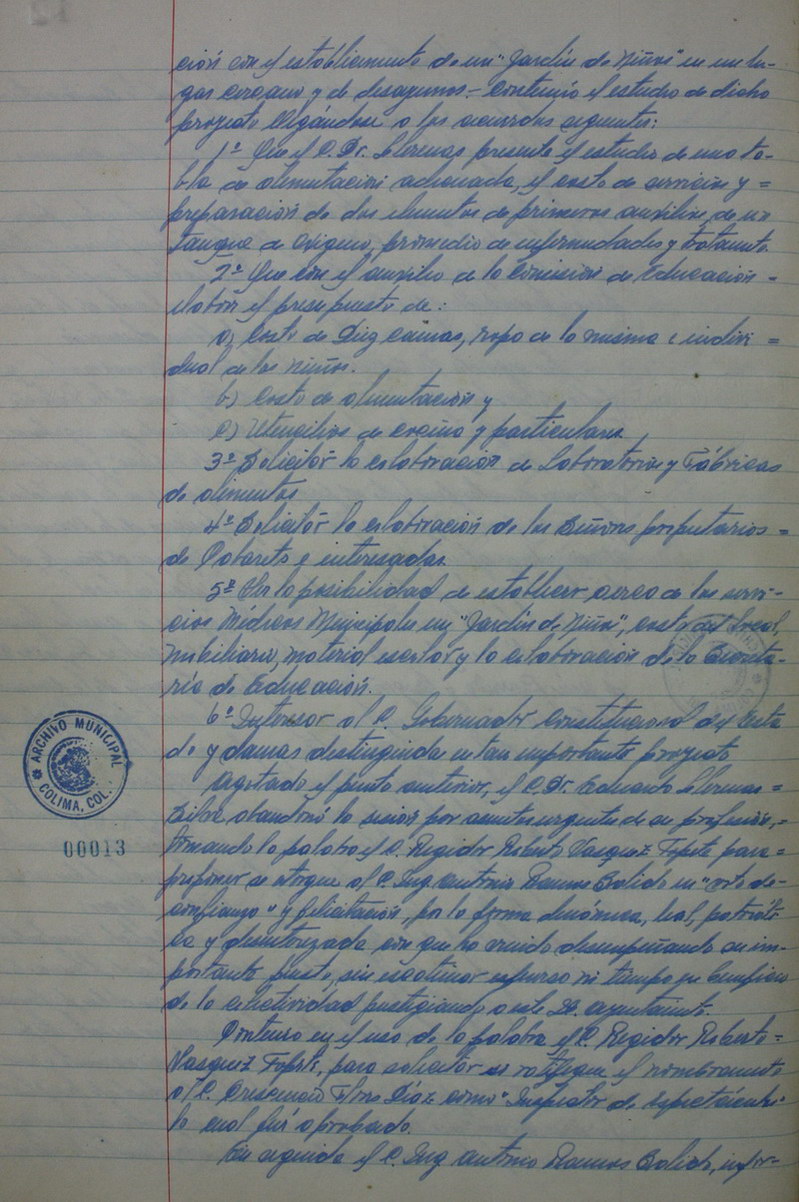 ción con el establecimiento de un "Jardín de Niños" en un lu-
gar cercano y de desayunos.- Continuó el estudio de dicho
proyecto llegándose a los acuerdos siguientes:
1º Que el C. Dr. Llerenas presente el estudio de una ta-
bla de alimentación adecuada, el costo de servicios y =
preparación de dos elementos de primeros auxilios, de un
tanque de Oxígeno, promedio de enfermedades y tratamto.
2º Que con el auxilio de la Comisión de Educación -
elabore el presupuesto de:
a) Costo de Diez camas, ropa de la misma e indivi =
dual de los niños.
b) Costo de alimentación y
c) Utensilios de cocina y particulares.
3º Solicitar la colaboración de Laboratorios y Fábricas
de alimentos
4º Solicitar la colaboración de los Señores propietarios -
de Cabarets e interesadas.
5º Ver la posibilidad de establecer cerca de los servi-
cios Médicos Municipales un "Jardín de Niños", costo del local,
mobiliario, material escolar y la colaboración de la Secreta-
ría de Educación.
6º Interesar al C. Gobernador Constitucional del Esta
do y damas distinguidas en tan importante proyecto
Agotado el punto anterior, el C. Dr. Eduardo Llerenas =
Silva abandonó la sesión por asuntos urgentes de su profesión, -
tomando la palabra el C. Regidor Roberto Vasquez Topete para =
proponer se otorgue al C. Ing. Antonio Ramos Salido un "voto de -
confianza" y felicitación, por la forma dinámica, leal, patrióti
ca y desinteresada con que ha venido desempeñando su im-
portante puesto, sin escatimar esfuerzo ni tiempo en beneficio
de la colectividad prestigiando a este H. Ayuntamiento.
Continuo en el uso de la palabra el C. Regidor Roberto =
Vasquez Topete, para solicitar se ratifique el nombramiento
al C. Crescencio Flores Díaz como "Inspector de espectáculos
lo cual fué aprobado.
En seguida el C. Ing. Antonio Ramos Salido, infor-
ARCHIVO MUNICIPAL
COLIMA, COL.
00013